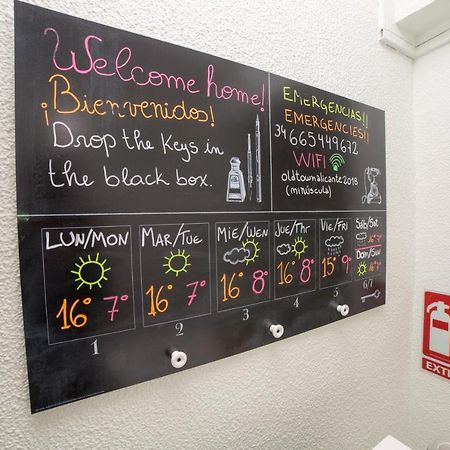 Welcome home!
¡Bienvenidos!
Drop the keys in
the black box.
EMERGENCIAS!!
EMERGENCIES!!
34 665449672
WIFI
oldtownalicante2018
(minúscula)
LUN/MON
16° 7°
1
MAR/TUE
16° 7°
2
MIE/WEN
16° 8°
3
JUE/THU
16° 8°
4
VIE/FRI
15° 9°
5
SAB/SAT
16° 7°
DOM/SUN
16° 7°
6/7
EXTI